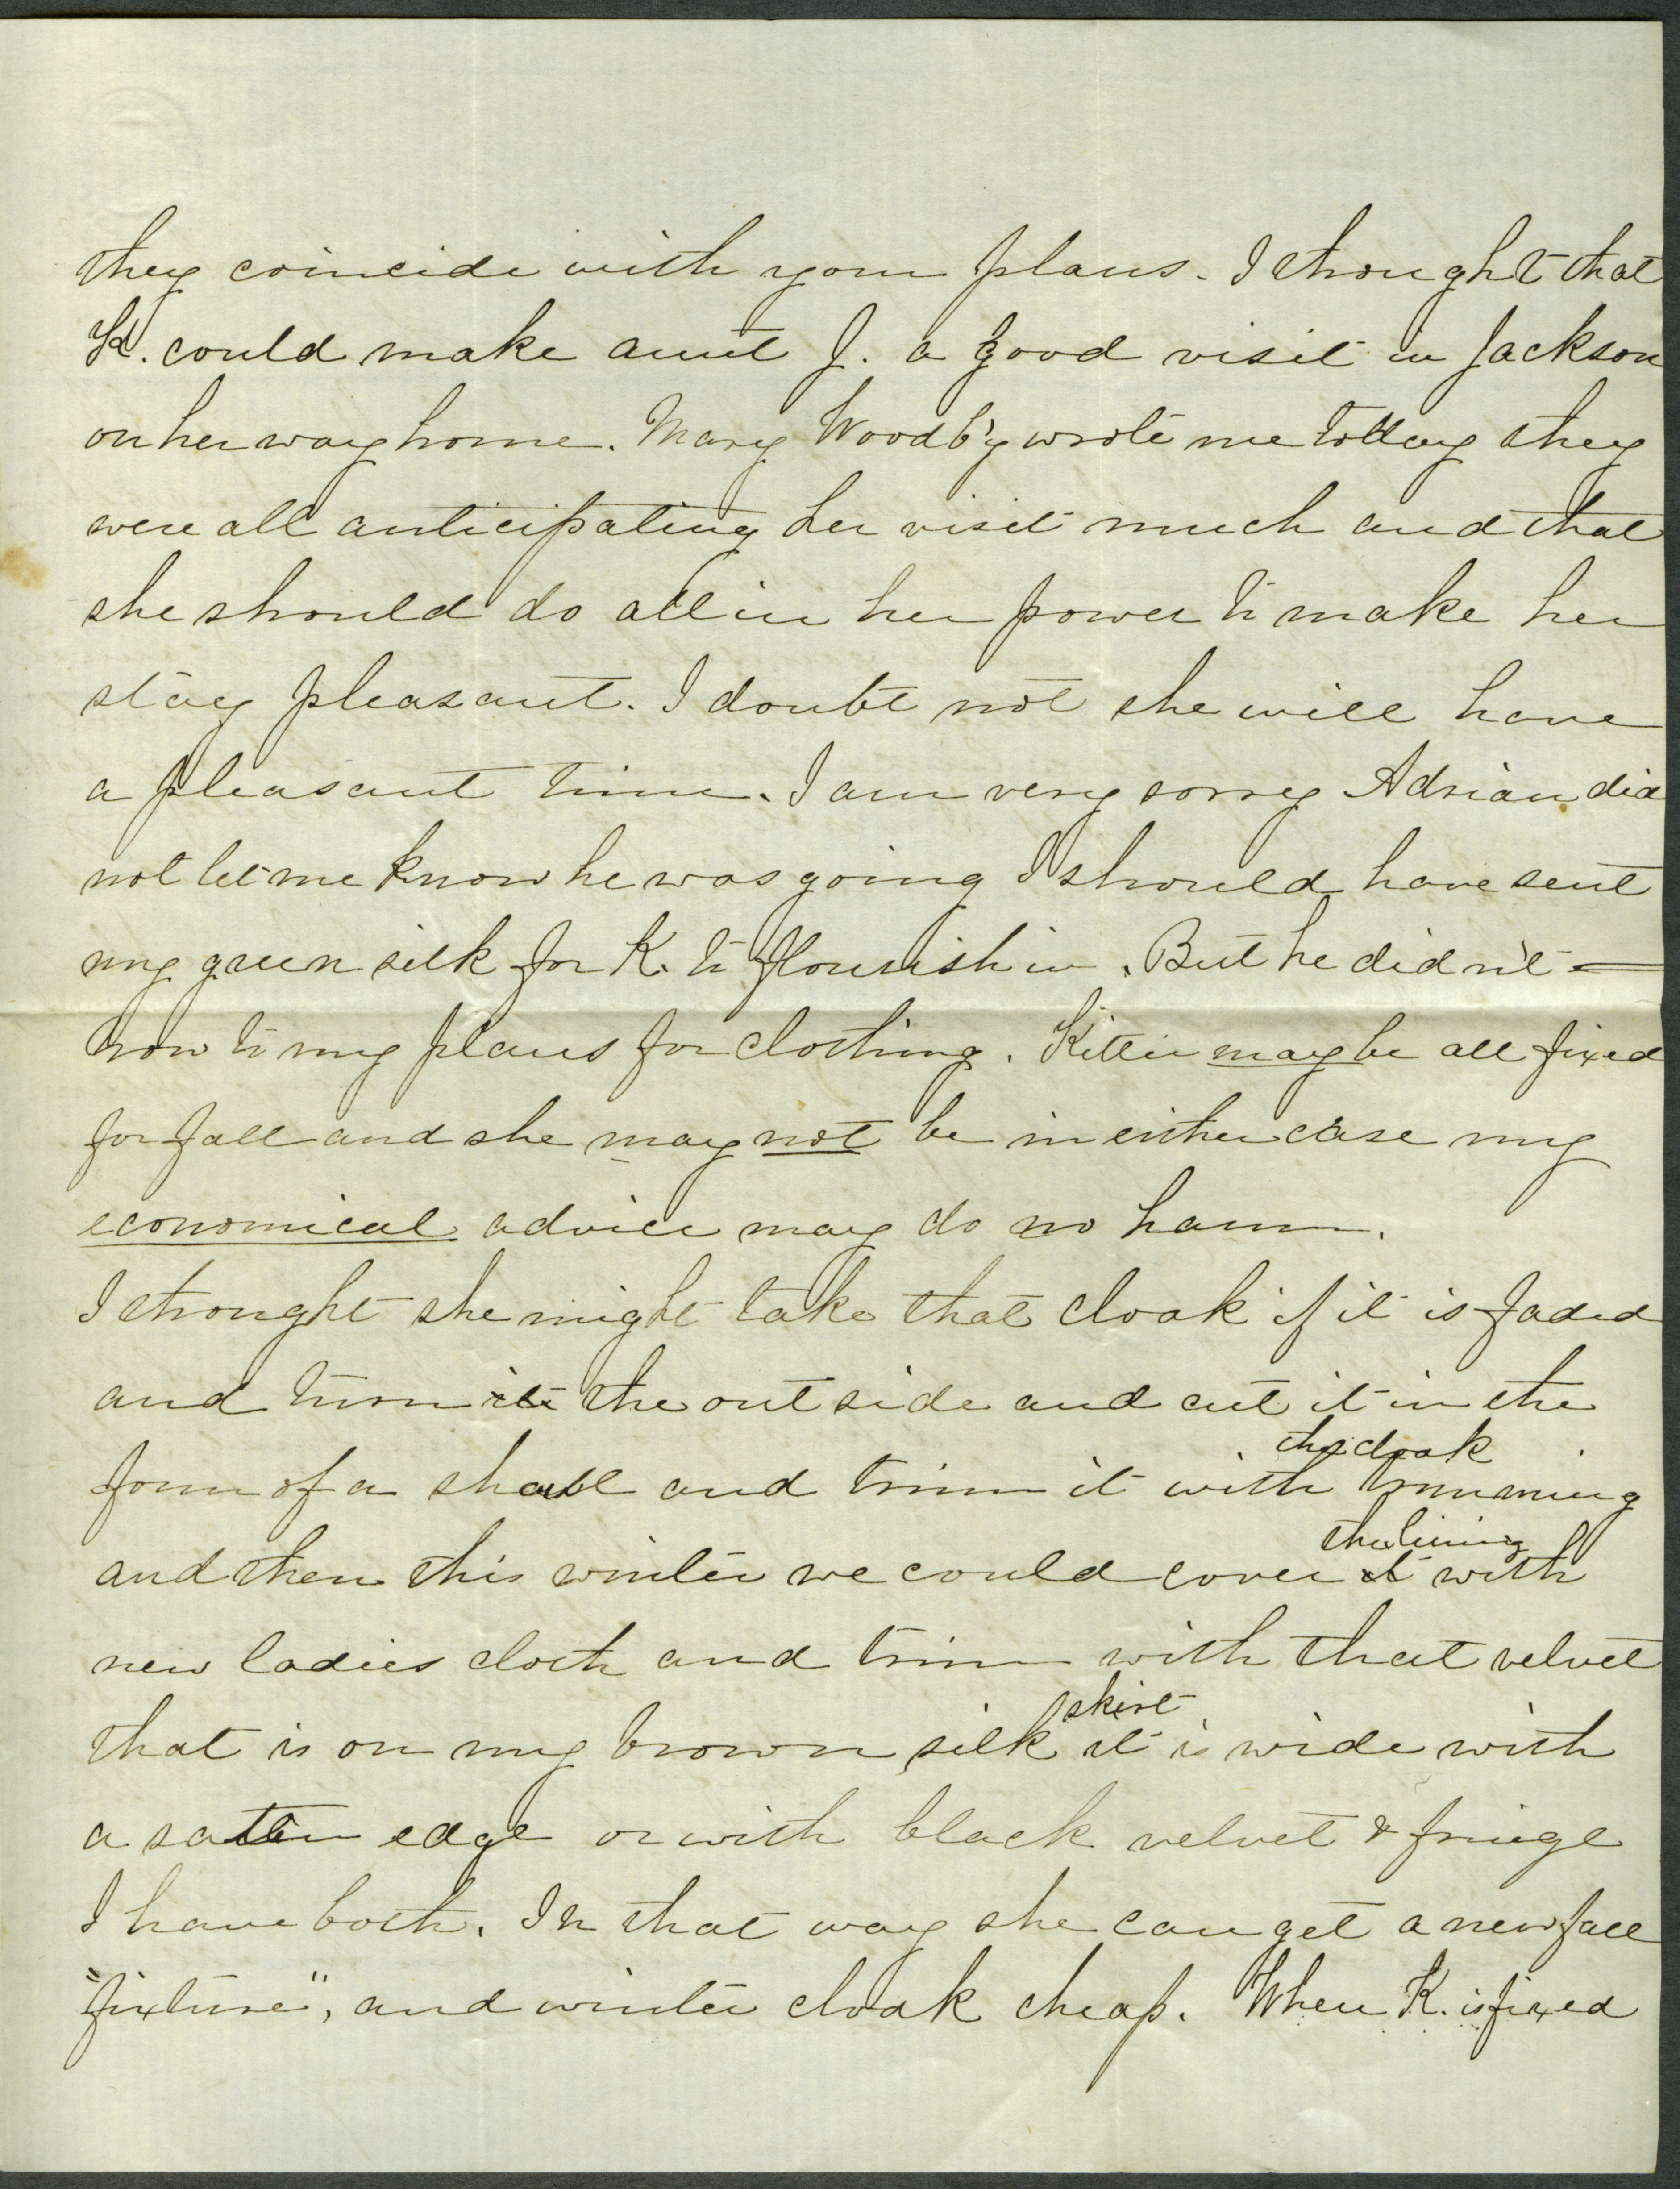 they coincide with your plans. I thought that
K. could make aunt J. a good visit in Jackson
on her way home. Mary Woodb'y wrote me to day they
were all anticipating her visit much and that
she should do all in her power to make her
stay pleasant. I doubt not she will have
a pleasant time. I am very sorry Adrian did
not let me know he was going I should have sent
my green silk for K. to flourish in. But he didn't =
now to my plans for clothing. Kittie may be all fixed
for fall and she may not be in either case my
economical advice may do no harm.
I thought she might take that cloak if it is faded
and turn it the outside and cut it in the
the cloak
form of a shawl and trim it with trimming
the lining
and then this winter we could cover it with
new ladies cloth and trim with that velvet
skirt
that is on my brown silk it is wide with
a satin edge or with black velvet & fringe
I have both. In that way she can get a new fall
"fixture", and winter cloak cheap. When K. is fixed